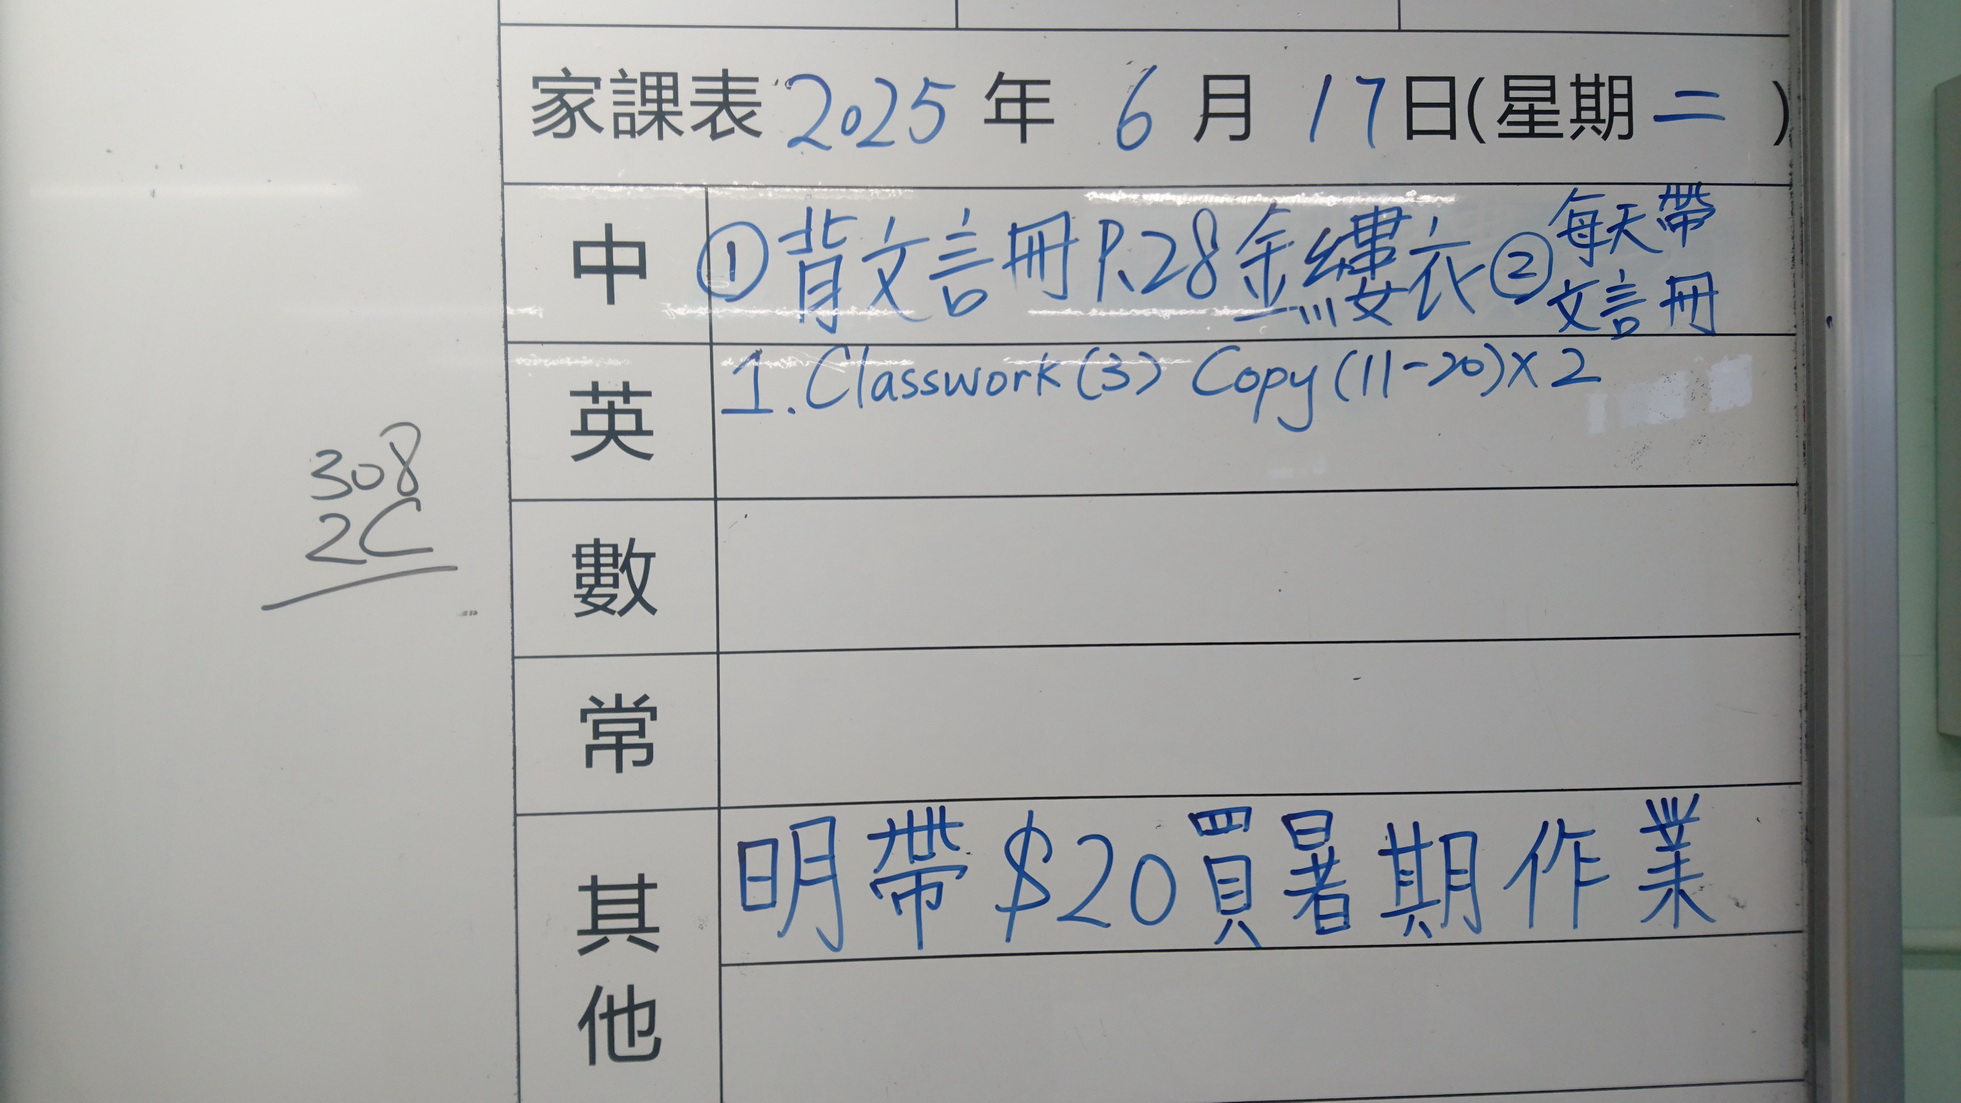 家課表 2025 年 6 月 17 日(星期 二 )
中 ①背文言冊P.28金縷衣 ②每天帶
文言冊
英 1. Classwork (3) Copy (11-20) x 2
308
2C
數
常
其他 明帶$20買暑期作業